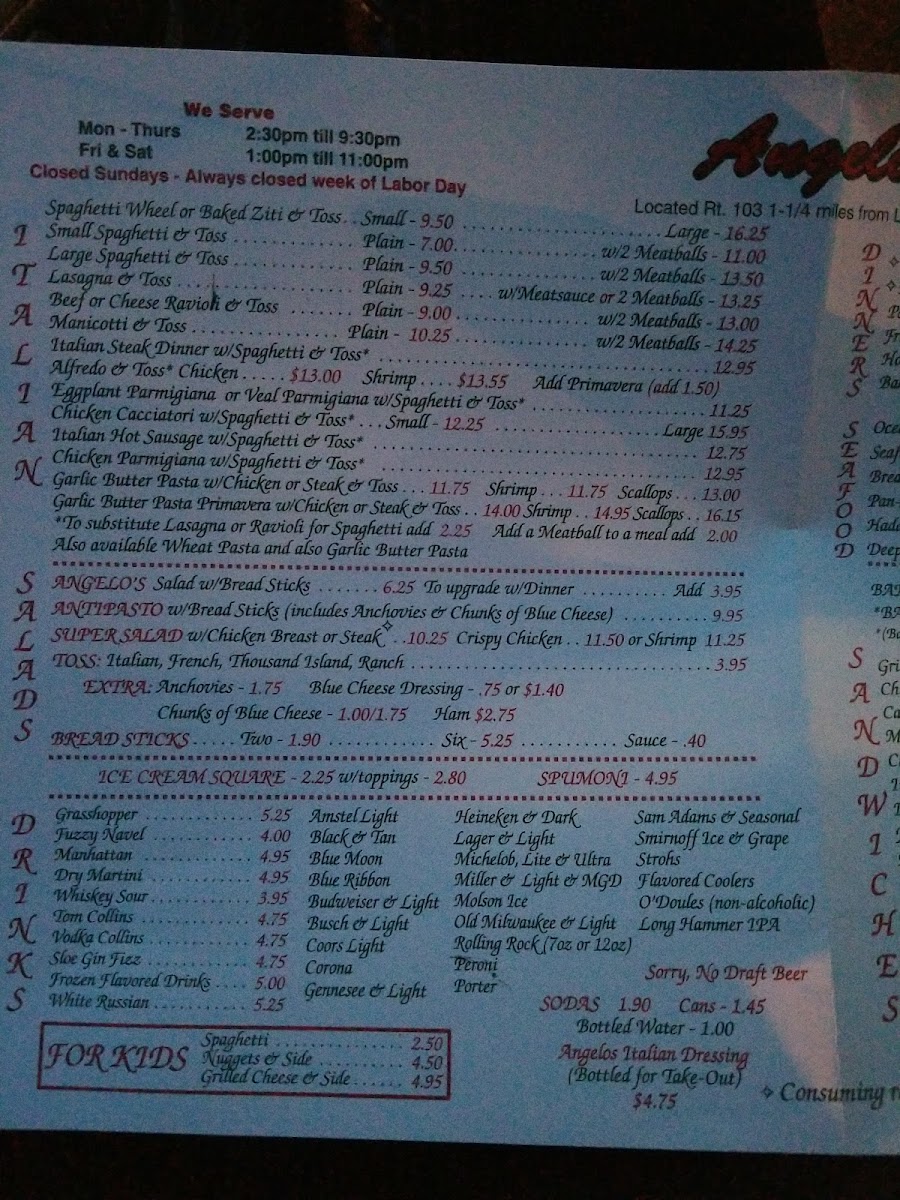 We Serve
Mon - Thurs 2:30pm till 9:30pm
Fri & Sat 1:00pm till 11:00pm
Closed Sundays - Always closed week of Labor Day
ITALIAN
Spaghetti Wheel or Baked Ziti & Toss. . Small - 9.50 ........................ Large - 16.25
Small Spaghetti & Toss ............ Plain - 7.00 ................ w/2 Meatballs - 11.00
Large Spaghetti & Toss ............ Plain - 9.50 ................ w/2 Meatballs - 13.50
Lasagna & Toss .................... Plain - 9.25 .... w/Meatsauce or 2 Meatballs - 13.25
Beef or Cheese Ravioli & Toss ....... Plain - 9.00 ................ w/2 Meatballs - 13.00
Manicotti & Toss ................ Plain - 10.25 ................ w/2 Meatballs - 14.25
Italian Steak Dinner w/Spaghetti & Toss* ........................ 12.95
Alfredo & Toss* Chicken ..... $13.00 Shrimp .... $13.55 Add Primavera (add 1.50)
Eggplant Parmigiana or Veal Parmigiana w/Spaghetti & Toss* ................ 11.25
Chicken Cacciatori w/Spaghetti & Toss* . . . Small - 12.25 ................ Large 15.95
Italian Hot Sausage w/Spaghetti & Toss* ........................ 12.75
Chicken Parmigiana w/Spaghetti & Toss* ........................ 12.95
Garlic Butter Pasta w/Chicken or Steak & Toss . . . 11.75 Shrimp . . . 11.75 Scallops . . . 13.00
Garlic Butter Pasta Primavera w/Chicken or Steak & Toss . . 14.00 Shrimp . . 14.95 Scallops . . 16.15
*To substitute Lasagna or Ravioli for Spaghetti add 2.25 Add a Meatball to a meal add 2.00
Also available Wheat Pasta and also Garlic Butter Pasta
SALADS
ANGELO'S Salad w/Bread Sticks ....... 6.25 To upgrade w/Dinner .......... Add 3.95
ANTIPASTO w/Bread Sticks (includes Anchovies & Chunks of Blue Cheese) .......... 9.95
SUPER SALAD w/Chicken Breast or Steak✧ . . 10.25 Crispy Chicken . . 11.50 or Shrimp 11.25
TOSS: Italian, French, Thousand Island, Ranch ........................ 3.95
EXTRA: Anchovies - 1.75 Blue Cheese Dressing - .75 or $1.40
Chunks of Blue Cheese - 1.00/1.75 Ham $2.75
BREAD STICKS ..... Two - 1.90 ............ Six - 5.25 .......... Sauce - .40
ICE CREAM SQUARE - 2.25 w/toppings - 2.80 SPUMONI - 4.95
DRINKS
Grasshopper ............ 5.25
Fuzzy Navel ............ 4.00
Manhattan ............ 4.95
Dry Martini ............ 4.95
Whiskey Sour ............ 3.95
Tom Collins ............ 4.75
Vodka Collins ............ 4.75
Sloe Gin Fizz ............ 4.75
Frozen Flavored Drinks .... 5.00
White Russian ............ 5.25
Amstel Light
Black & Tan
Blue Moon
Blue Ribbon
Budweiser & Light
Busch & Light
Coors Light
Corona
Gennesee & Light
Heineken & Dark
Lager & Light
Michelob, Lite & Ultra
Miller & Light & MGD
Molson Ice
Old Milwaukee & Light
Rolling Rock (7oz or 12oz)
Peroni
Porter
Sam Adams & Seasonal
Smirnoff Ice & Grape
Strohs
Flavored Coolers
O'Doules (non-alcoholic)
Long Hammer IPA
Sorry, No Draft Beer
SODAS 1.90 Cans - 1.45
Bottled Water - 1.00
Angelos Italian Dressing
(Bottled for Take-Out)
$4.75
FOR KIDS
Spaghetti ................ 2.50
Nuggets & Side .......... 4.50
Grilled Cheese & Side ...... 4.95
Angelo
Located Rt. 103 1-1/4 miles from L
DINNERS
SEAFOOD
Seaf
Brea
Pan-
Hadd
Deep
SANDWICHES
✧ Consuming r